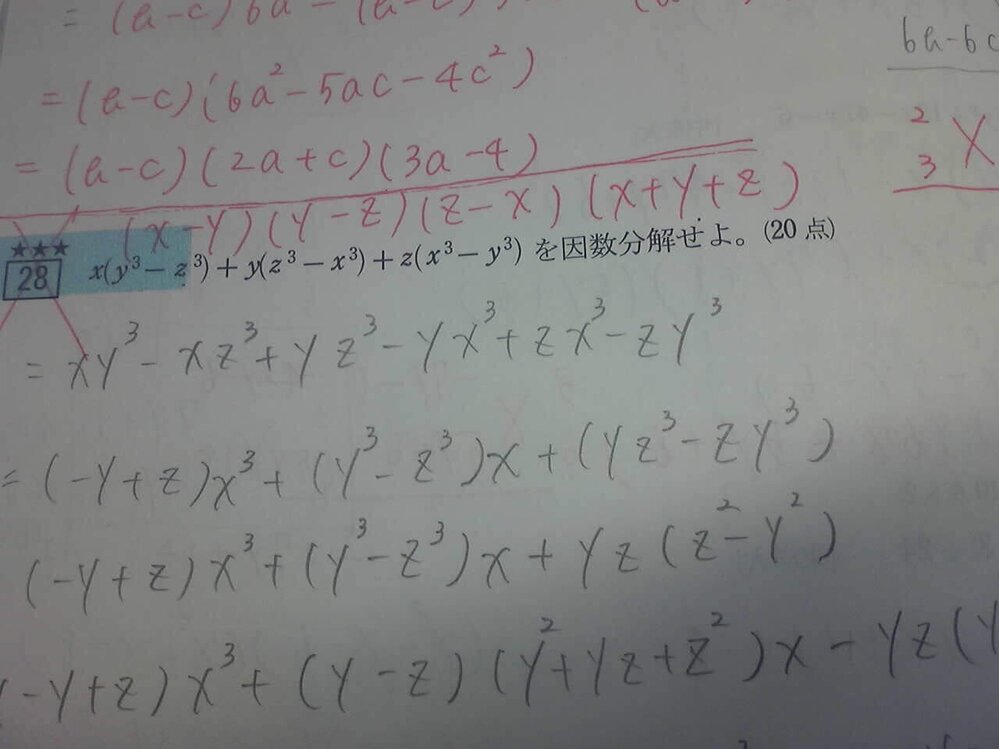 = (a-c)6a
6a-6c
= (a-c)(6a²-5ac-4c²)
= (a-c)(2a+c)(3a-4)
2 X
3
(x-y)(y-z)(z-x)(x+y+z)
★★★
28 x(y³-z³)+y(z³-x³)+z(x³-y³) を因数分解せよ。(20点)
= xy³-xz³+yz³-yx³+zx³-zy³
= (-y+z)x³+(y³-z³)x+(yz³-zy³)
(-y+z)x³+(y³-z³)x+yz(z²-y²)
(-y+z)x³+(y-z)(y²+yz+z²)x-yz(y